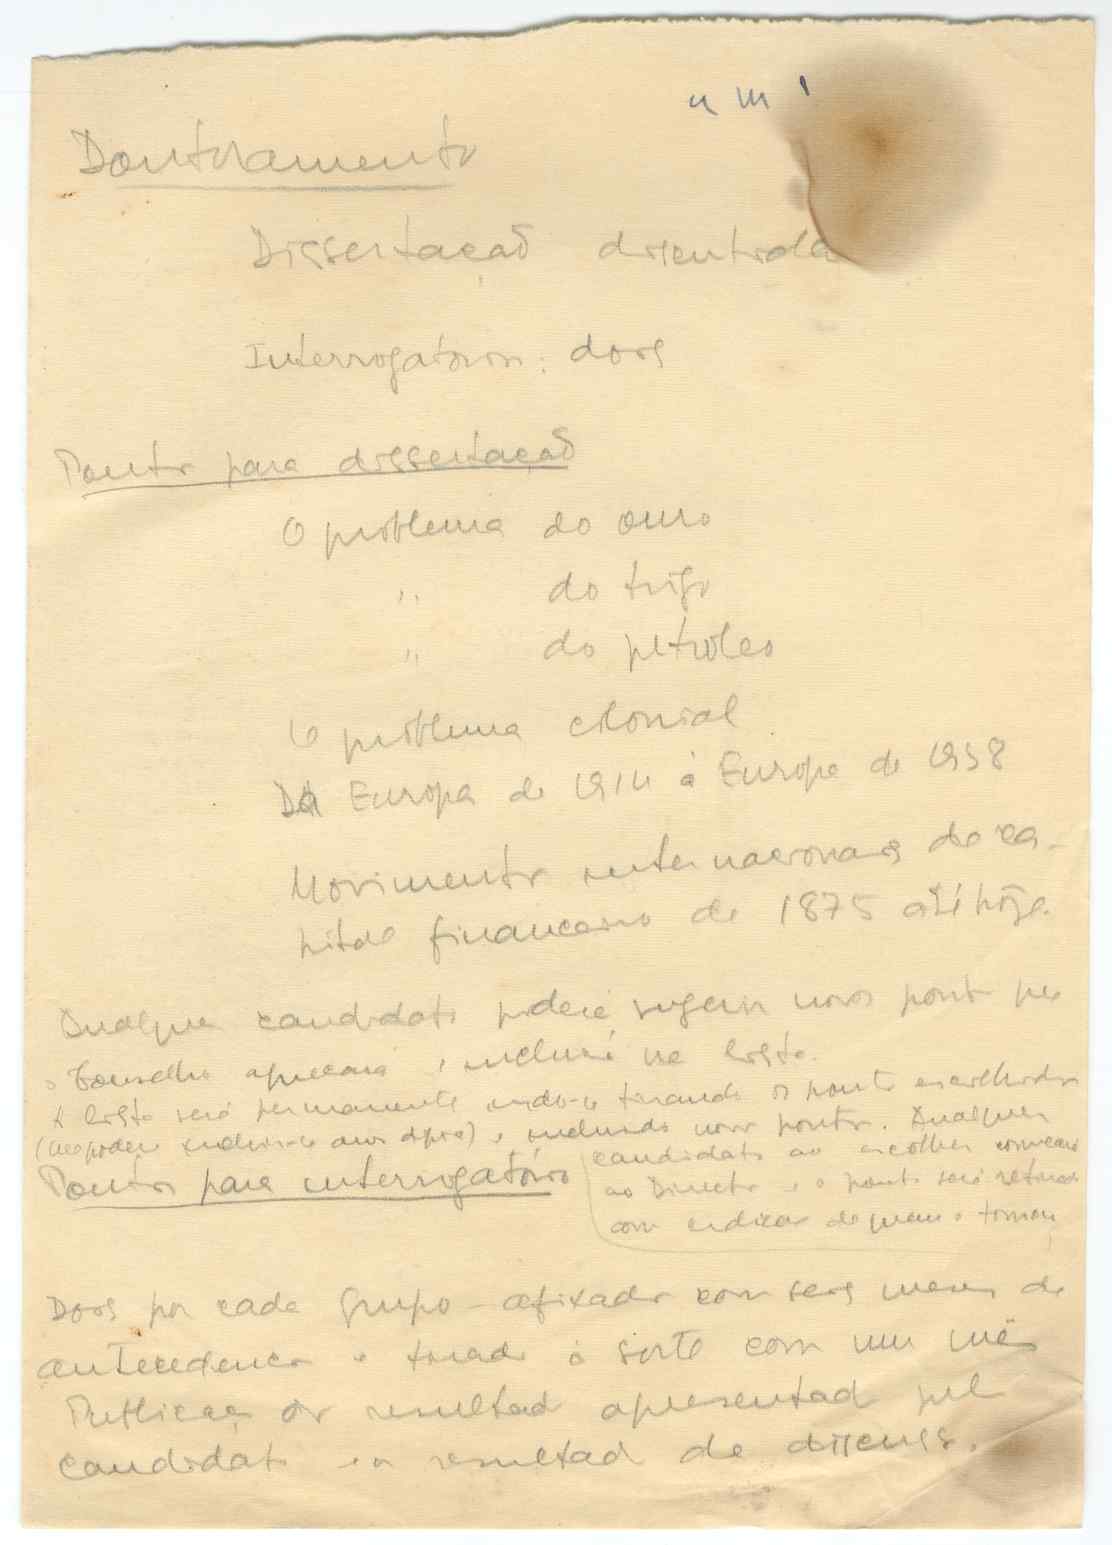 Doutoramento
Dissertação discutida
Interrogatórios: dois
Pontos para dissertação
O problema do ouro
" do trigo
" do petroleo
O problema colonial
Da Europa de 1914 à Europa de 1938
Movimentos internacionais de ca-
pital financeiro de 1875 até hoje.
Qualquer candidato poderá sugerir novos pontos que
o Conselho apreciará e incluirá na lista.
A lista será permanente tirando os pontos escolhidos
e incluindo novos pontos. Qualquer
candidato ao escolher comunica
ao Director e o ponto será retirado
com indicação de quem o tomou
Pontos para interrogatório
Dois por cada grupo - afixados com seis meses de
antecedencia e tirado à sorte com um mês
Publicação dos resultados apresentados pelo
candidato e resultado de discussão.